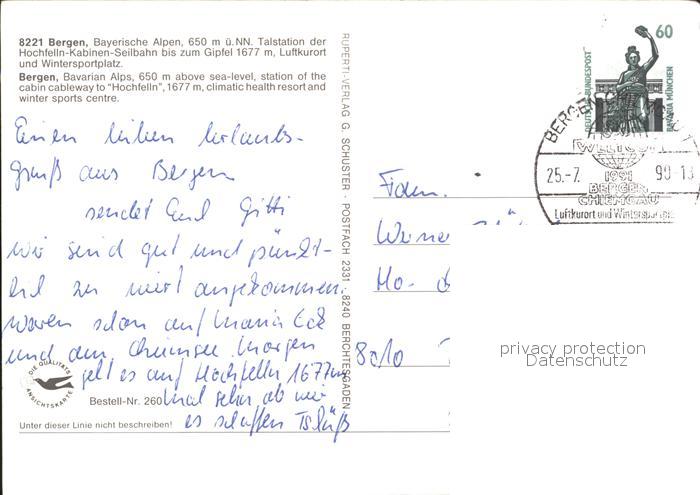 8221 Bergen, Bayerische Alpen, 650 m ü. NN. Talstation der
Hochfelln-Kabinen-Seilbahn bis zum Gipfel 1677 m, Luftkurort
und Wintersportplatz.
Bergen, Bavarian Alps, 650 m above sea-level, station of the
cabin cableway to "Hochfelln", 1677 m, climatic health resort and
winter sports centre.
Einen lieben Urlaubs-
gruß aus Bergen
sendet Euch Gitti
wir sind gut und pünkt-
lich angekommen.
waren schon auf Maria Eck
und am Chiemsee. Morgen
geht es auf Hochfelln 1677m
Mal sehen ob wir
es schaffen Tschüß
DIE QUALITÄTS
ANSICHTSKARTE
Bestell-Nr. 260
Unter dieser Linie nicht beschreiben!
RUPERTI-VERLAG G. SCHUSTER · POSTFACH 2331 · 8240 BERCHTESGADEN
60
DEUTSCHE BUNDESPOST
BAVARIA MÜNCHEN
BERGEN
25.-7. 90-18
1991
BERGEN
CHIEMGAU
Luftkurort und Wintersportplatz
Fam.
Werne
8010
privacy protection
Datenschutz